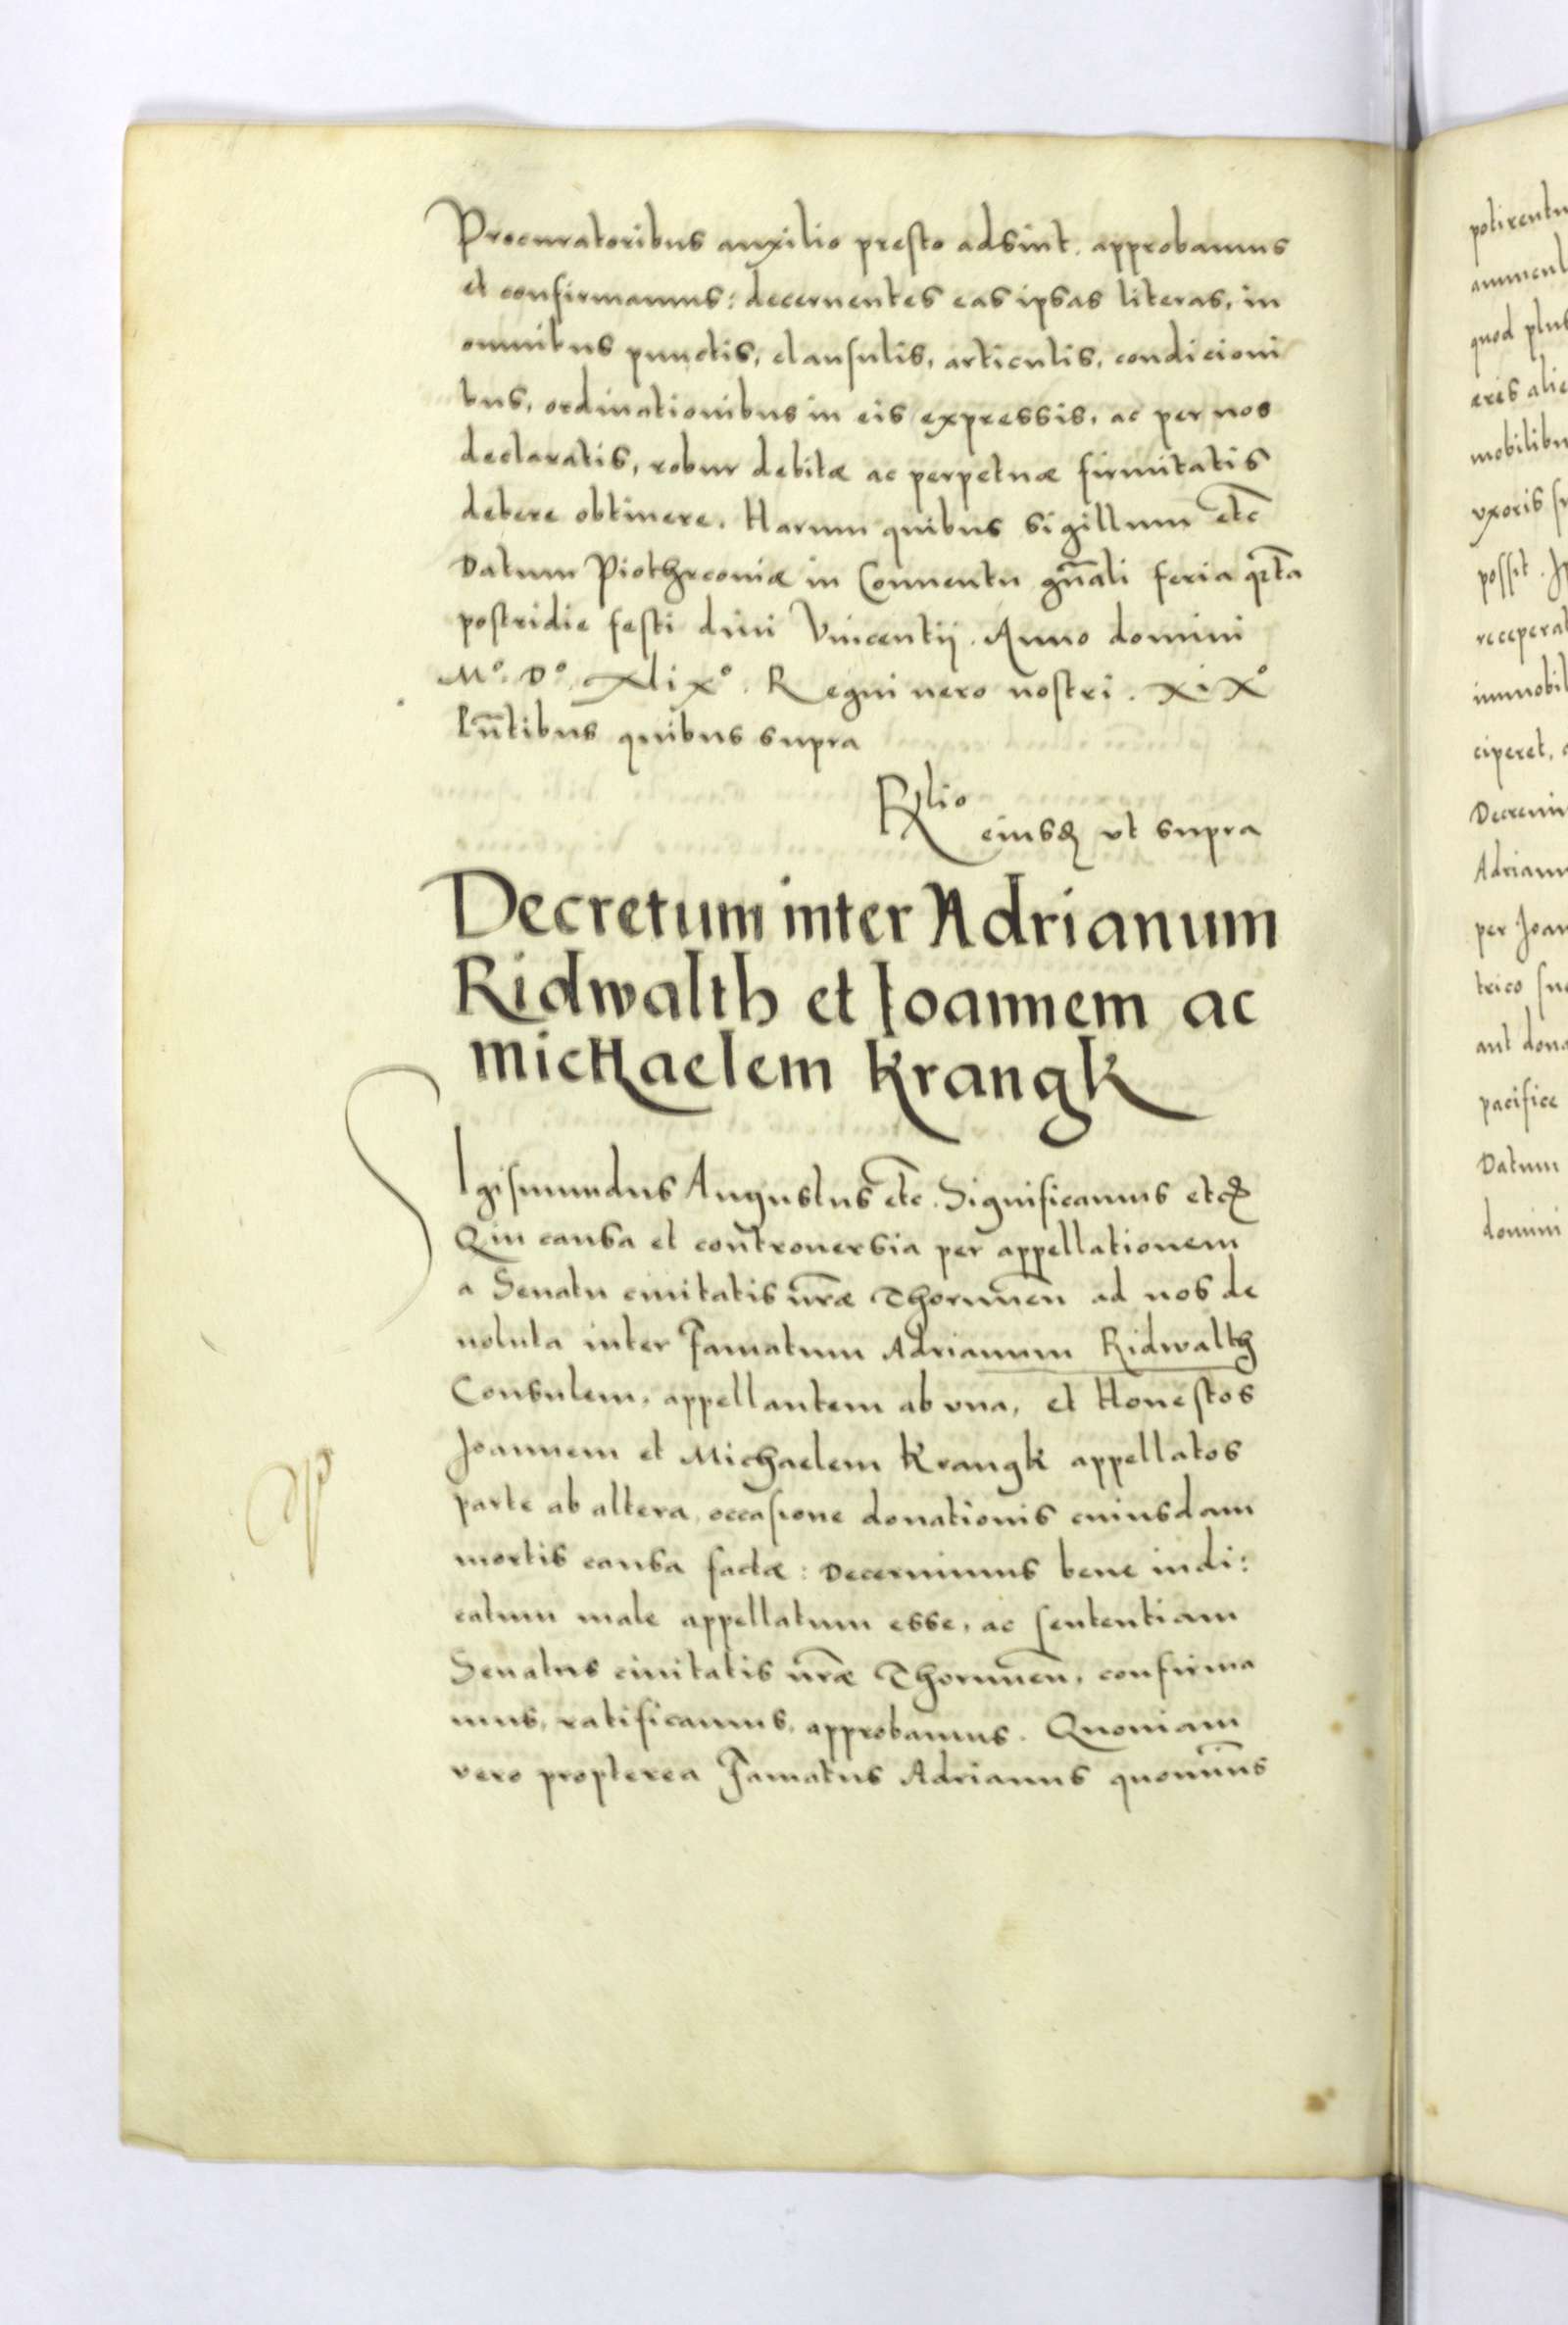 Procuratoribus auxilio presto adsint. approbamus
et confirmamus: decernentes eas ipsas literas, in
omnibus punctis, clausulis, articulis, condicioni
bus, ordinationibus in eis expressis, ac per nos
declaratis, robur debitæ ac perpetuæ firmitatis
debere obtinere. Harum quibus sigillum etc̄
Datum Piothrconiæ in Conuentu gn̄ali feria qr̄ta
postridie festi diui Vincentii. Anno domini
Mº. Dº. xlixº. Regni uero nostri. xixº
Pn̄tibus quibus supra
Rlio
eiusdꝫ vt supra
Decretum inter Adrianum
Ridwalth et Ioannem ac
micHaelem Krangk
SIgismundus Augustus etc̄. Significamus etc̄ꝫ
Q in causa et controuersia per appellationem
a Senatu ciuitatis nr̄æ Thorunen̄ ad nos de
uoluta inter Famatum Adrianum Ridwalth
Consulem, appellantem ab vna, et Honestos
Joannem et Michaelem Krangk appellatos
parte ab altera, occasione donationis cuiusdam
mortis causa factæ: Decernimus bene iudi:
catum male appellatum esse, ac sententiam
Senatus ciuitatis nr̄æ Thorunen̄, confirma
mus, ratificamus, approbamus. Quoniam
vero propterea Famatus Adrianus quomin̄s
potirentu
quod plus
eris alie
mobilibu
vxoris su
possit. J
receperat
immobil
ciperet,
Decreui
Adrianu
per Joan
trico su
aut dona
pacifice
Datum
domini